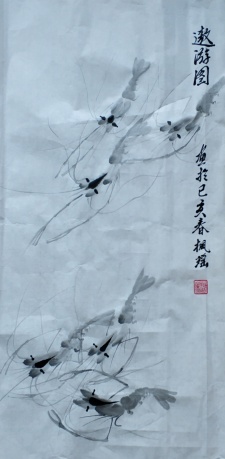 遨游图
画于己亥春枫瑶